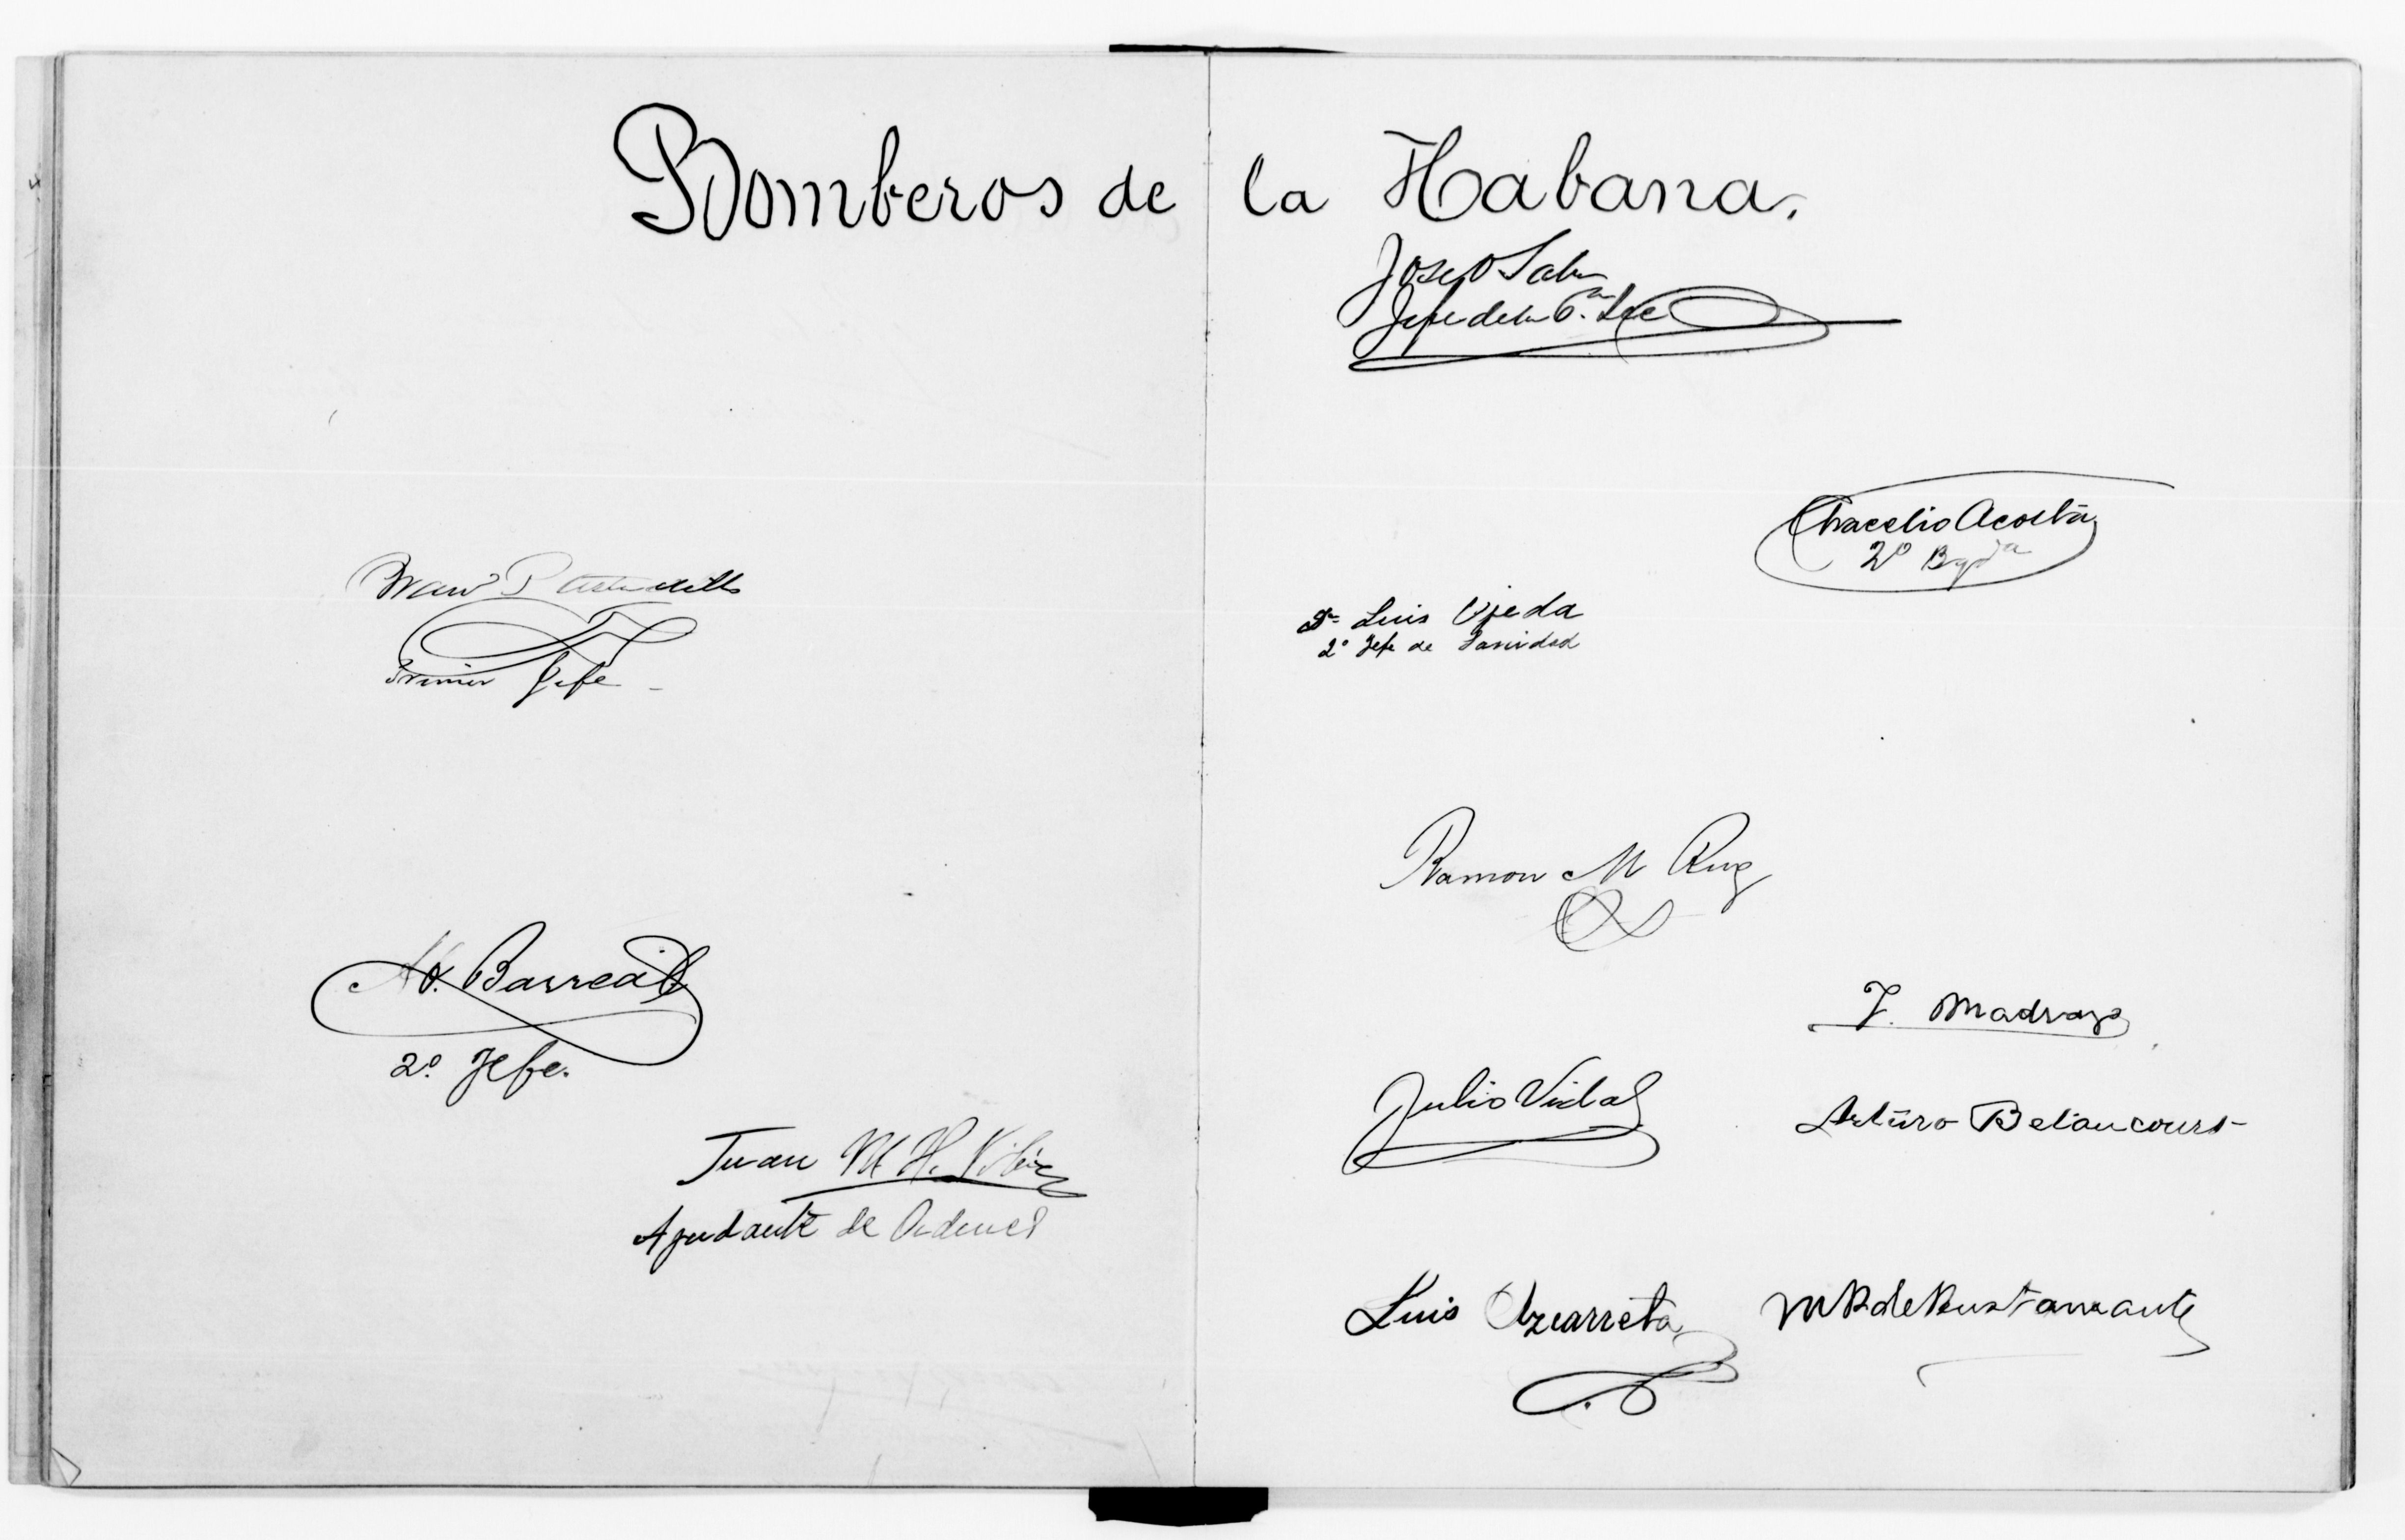 Bomberos de la Habana.
Primer Jefe
Barreal
2º Jefe.
Juan M H.
Ayudante de Ordenes
Jose
Jefe de la
Acosta
2º
Dr Luis Ojeda
2º Jefe de Sanidad
Ramon M Ruz
J. Madrazo
Julio Vidal
Arturo Betancourt
Luis Azcarreta
M R de Bustamante